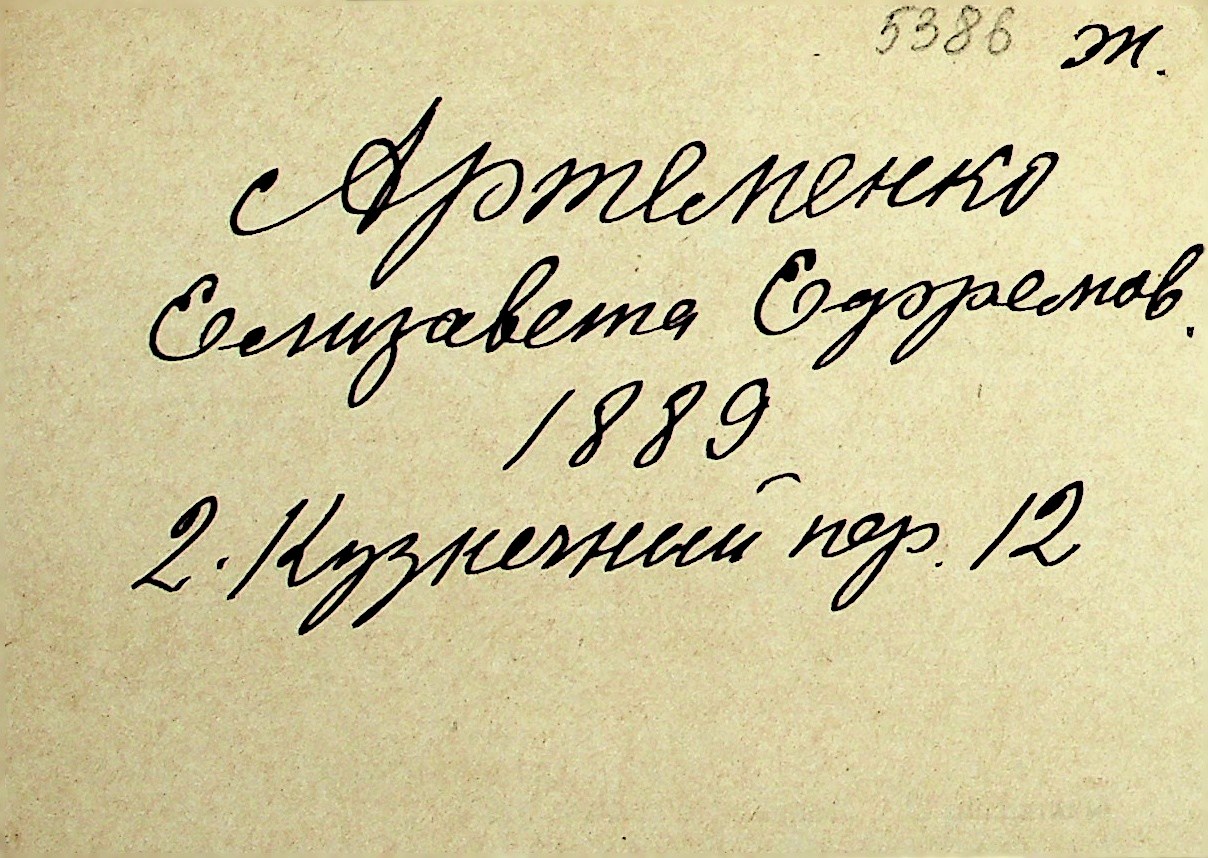 5386 ж.
Артеменко
Елизавета Ефремов.
1889
2. Кузнечный пер. 12